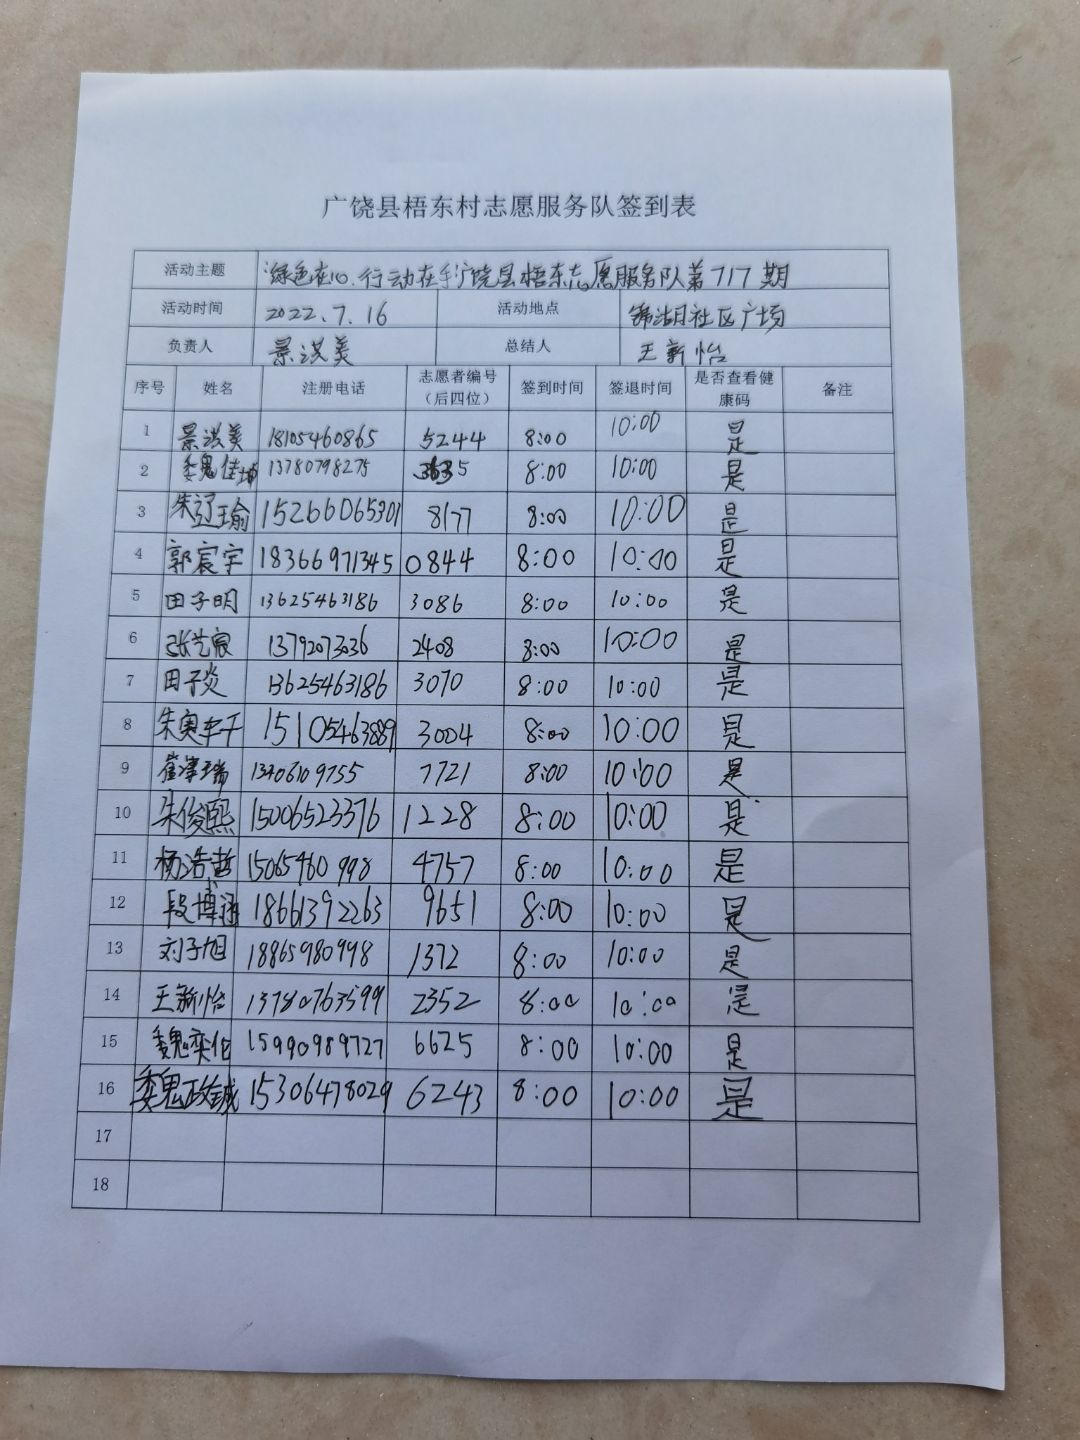 广饶县梧东村志愿服务队签到表
活动主题 绿色在心、行动在手广饶县梧东志愿服务队第717期
活动时间 2022.7.16 活动地点 锦湖月社区广场
负责人 景淇美 总结人 王新怡
序号 姓名 注册电话 志愿者编号（后四位） 签到时间 签退时间 是否查看健康码 备注
1 景淇美 18105460865 5244 8:00 10:00 是
2 魏佳 13780798275 3635 8:00 10:00 是
3 朱 瑜 15266065901 8177 8:00 10:00 是
4 郭宸宇 18366971345 0844 8:00 10:00 是
5 田子明 13625463186 3086 8:00 10:00 是
6 张艺宸 13792073036 2408 8:00 10:00 是
7 田子炎 13625463186 3070 8:00 10:00 是
8 朱奥 15105463889 3004 8:00 10:00 是
9 崔 瑞 13406109755 7721 8:00 10:00 是
10 朱俊熙 15006523376 1228 8:00 10:00 是
11 杨浩哲 15065460998 4757 8:00 10:00 是
12 段博涵 18661392263 9651 8:00 10:00 是
13 刘子旭 18865980998 1372 8:00 10:00 是
14 王新怡 13780763599 2352 8:00 10:00 是
15 魏奕伦 15990989727 6625 8:00 10:00 是
16 魏政铖 15306478029 6243 8:00 10:00 是
17
18